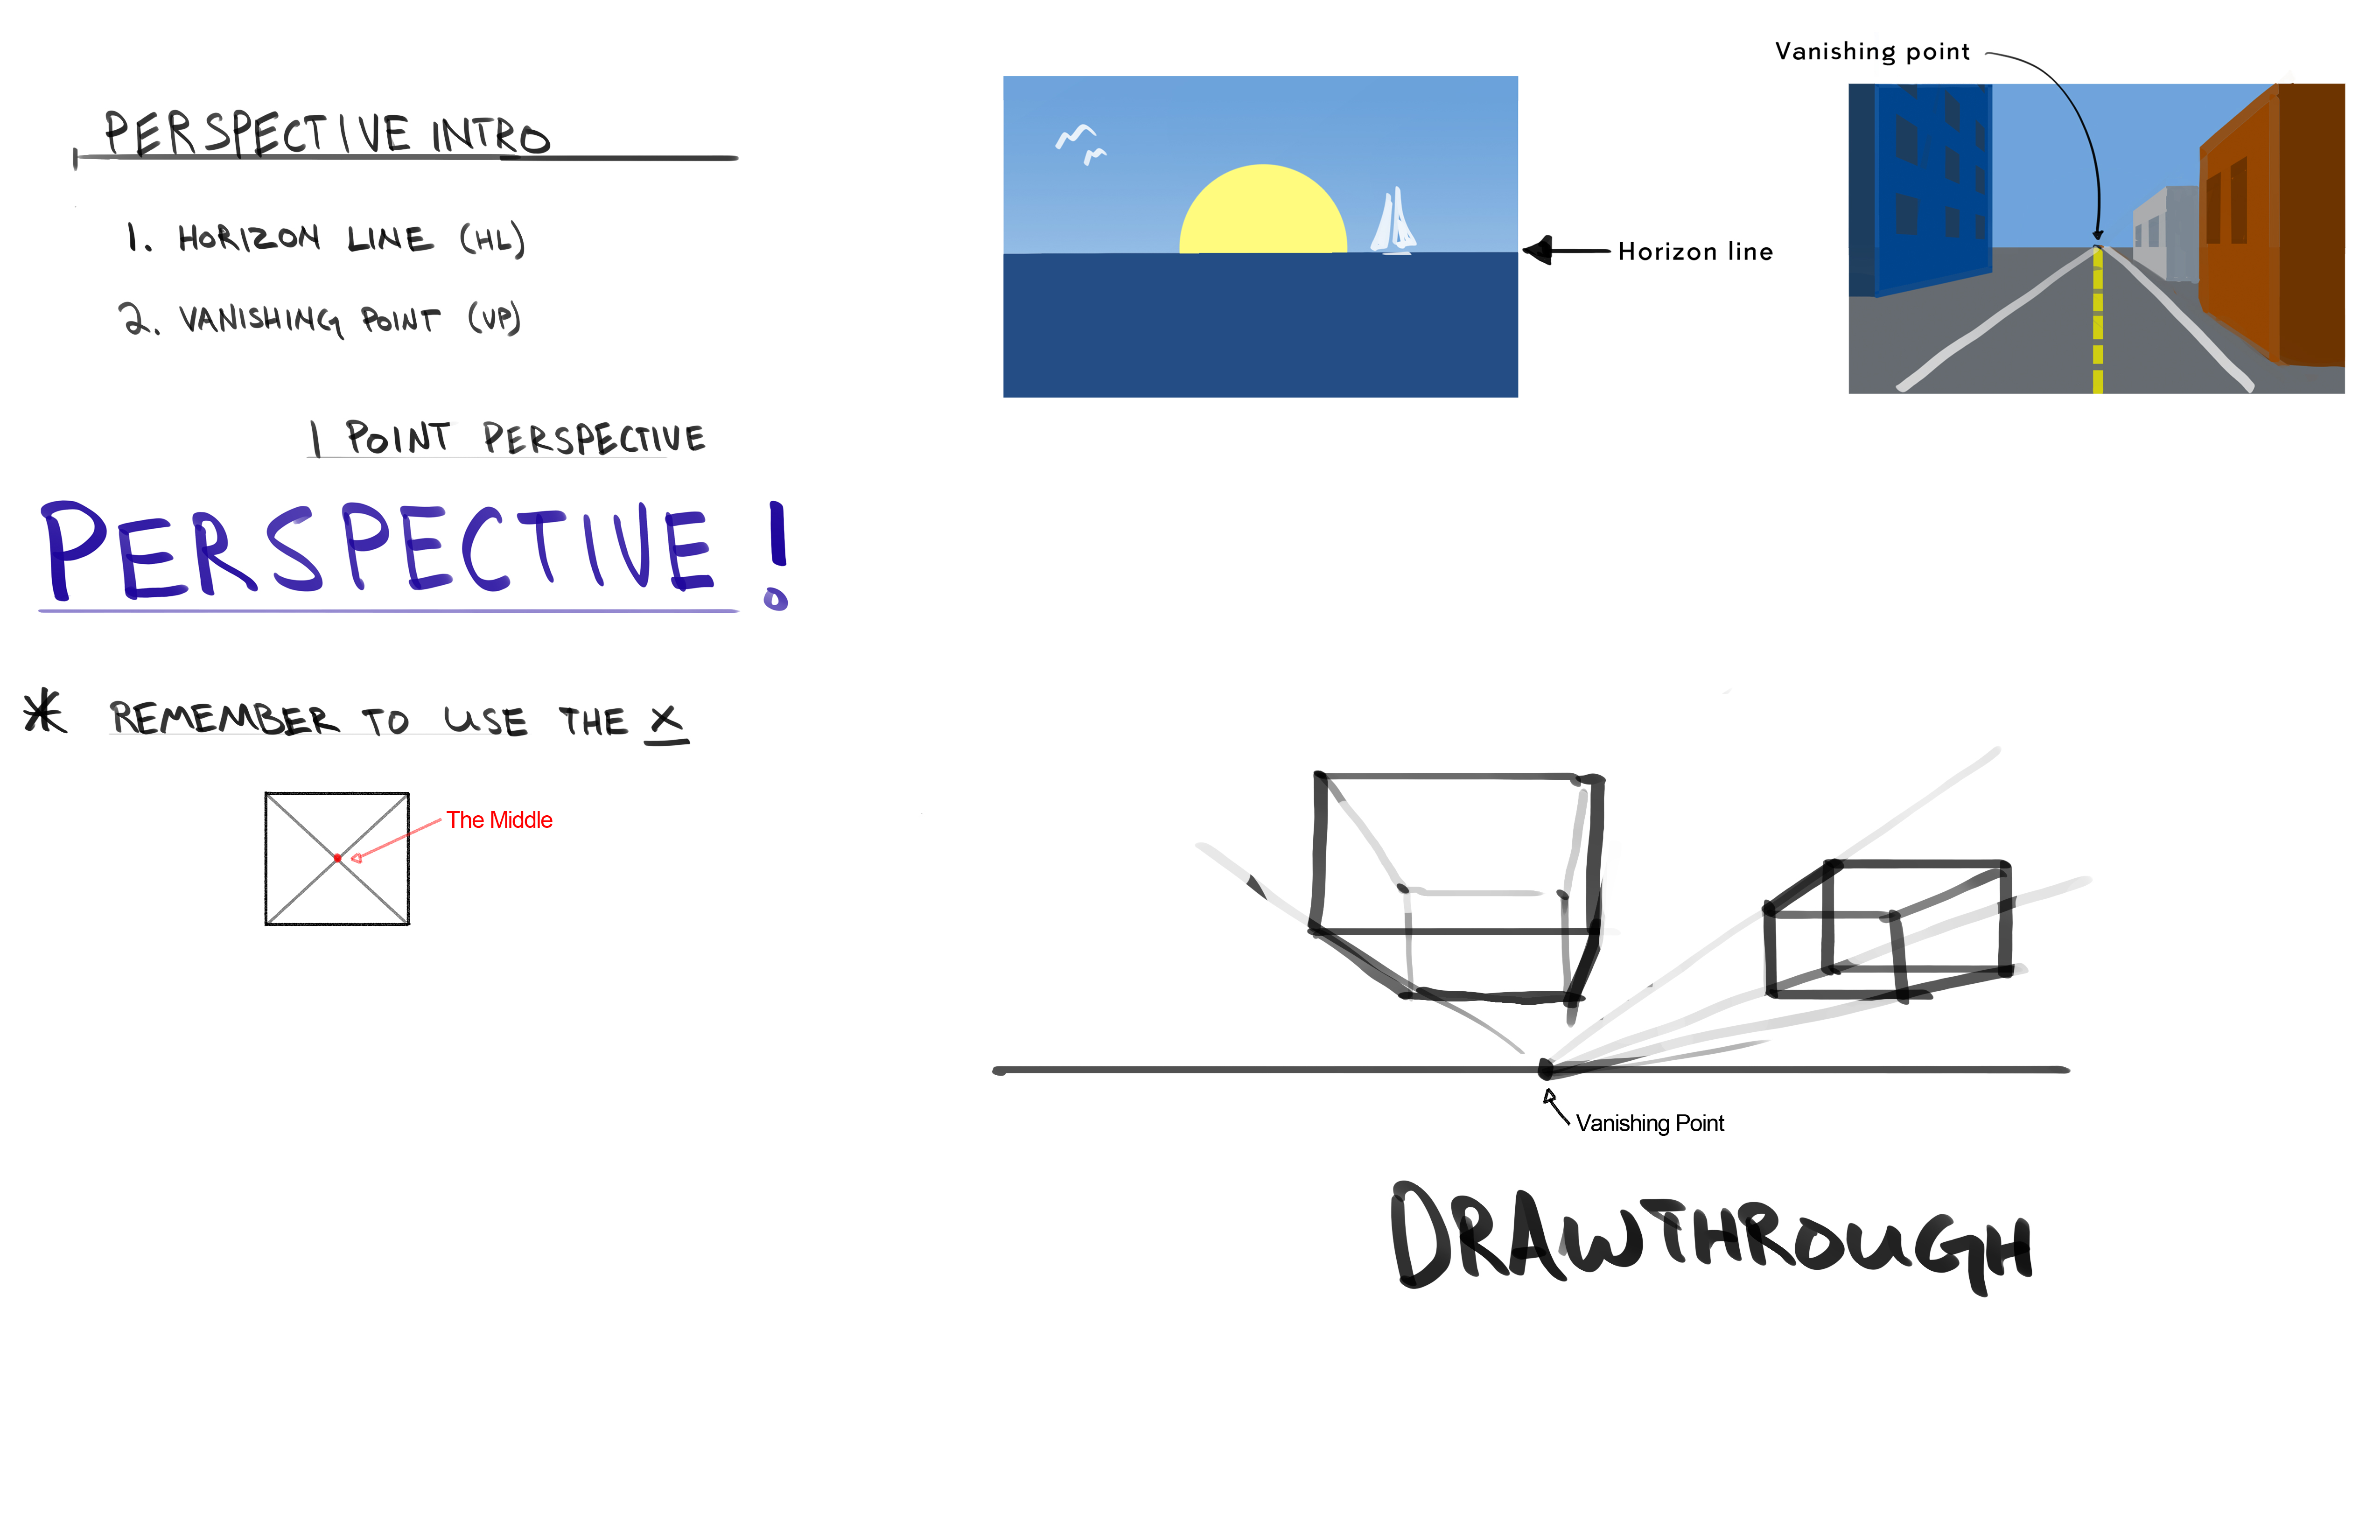 PERSPECTIVE INTRO
1. HORIZON LINE (HL)
2. VANISHING POINT (VP)
1 POINT PERSPECTIVE
PERSPECTIVE!
* REMEMBER TO USE THE X
The Middle
Horizon line
Vanishing point
Vanishing Point
DRAWTHROUGH